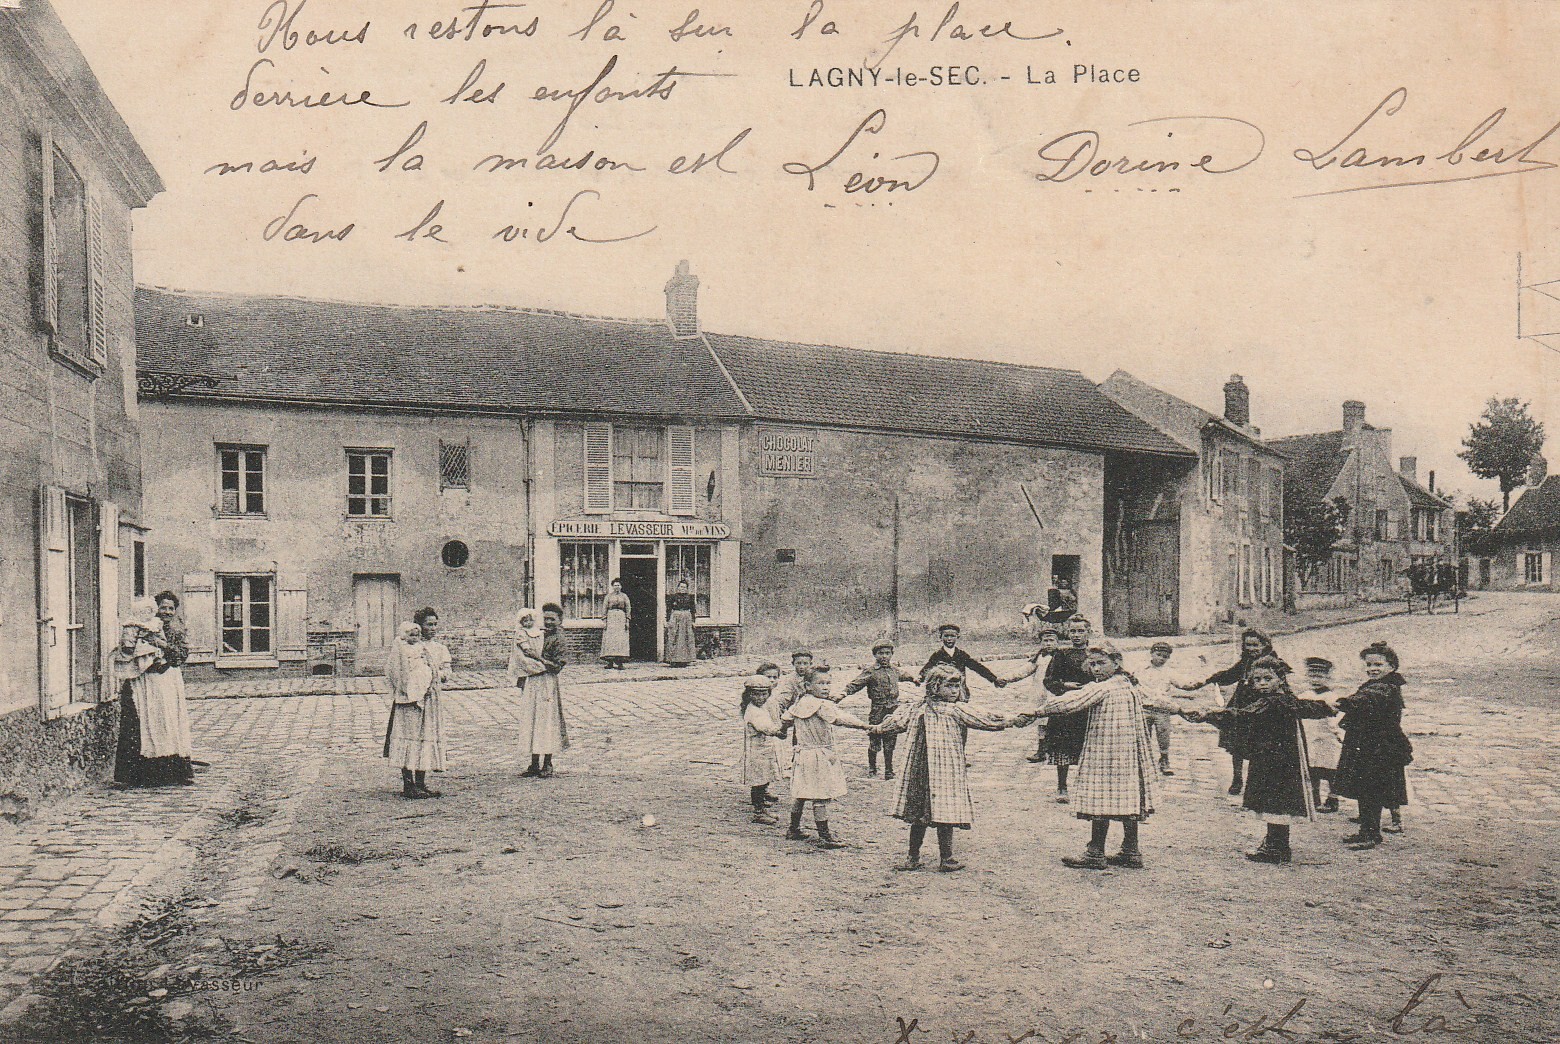 Nous restons là sur la place.
derrière les enfants
mais la maison est
dans le vide
LAGNY-le-SEC. - La Place
Léon Dorine Lambert
CHOCOLAT
MENIER
ÉPICERIE LEVASSEUR Md DE VINS
Levasseur
x x x x x c'est là